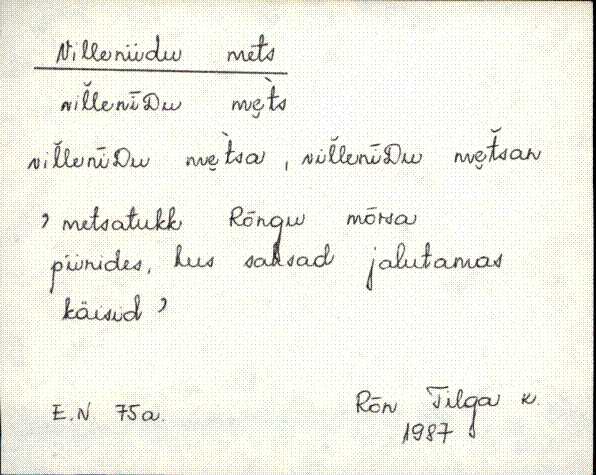 Villeniidu mets
vĭllenīDu mę̀ts
vĭllenīDu mę̀tsa, vĭllenīDu mę̆tsan
’metsatukk Rõngu mõisa
piirides, kus saksad jalutamas
käisid’
E.N 75a.
Rõn Tilga k.
1987